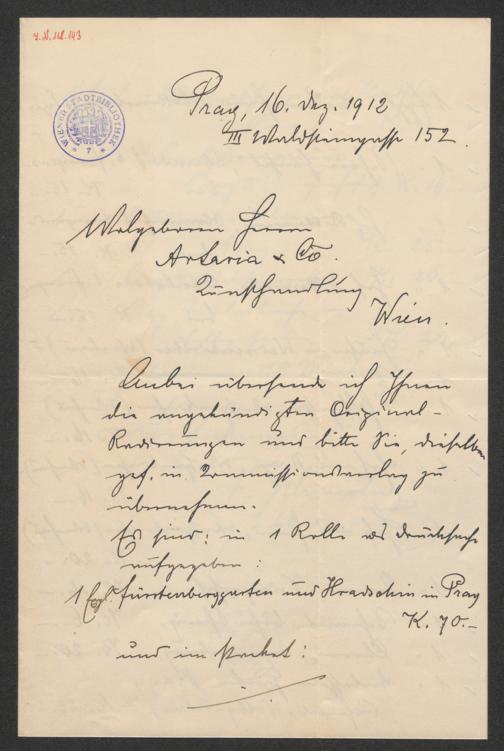 Z.N. 118.143
WIENER STADTBIBLIOTHEK
* 7 *
Prag, 16. Dez. 1912
III Waldsteingasse 152.
Wolgeboren Herrn
Artaria & Co.
Kunsthandlung
Wien.
Anbei übersende ich Ihnen
die angekündigten Original-
Radierungen und bitte Sie, dieselben
gef. in Kommissionsverlag zu
übernehmen.
Es sind: in 1 Rolle als Drucksache
aufgegeben:
1 Expl. Fürstenberggarten und Hradschin in Prag
K. 70.-
und im Packet:
./.